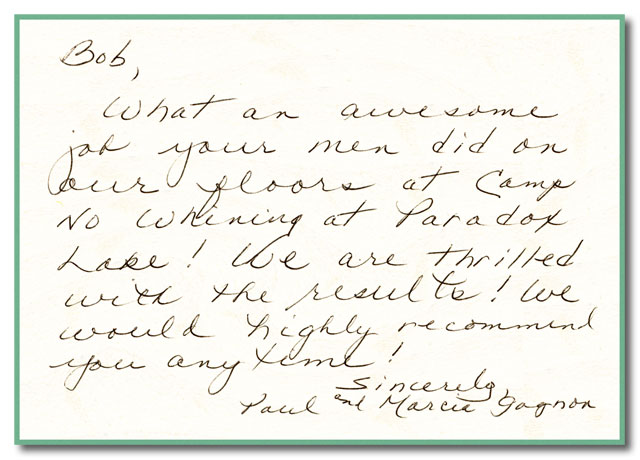 Bob,
What an awesome
job your men did on
our floors at Camp
No Whining at Paradox
Lake! We are thrilled
with the results! We
would highly recommend
you anytime!
Sincerely,
Paul and Marcia Gagnon